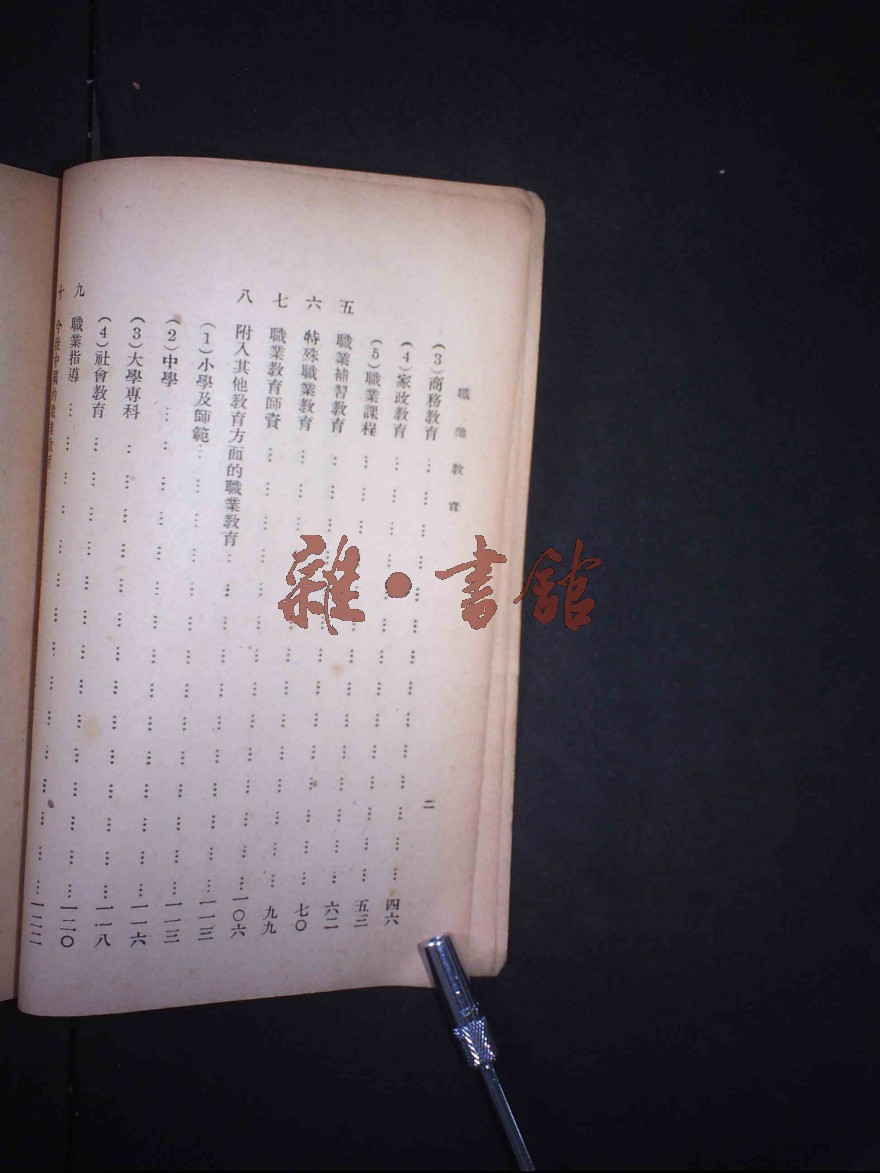 職業教育
二
(3)商務教育……………………………四六
(4)家政教育……………………………五三
(5)職業課程……………………………六二
五 職業補習教育……………………………七〇
六 特殊職業教育……………………………九九
七 職業教育師資……………………………一〇六
八 附入其他教育方面的職業教育……………………一一三
(1)小學及師範……………………………一一三
(2)中學……………………………一一六
(3)大學專科……………………………一一八
(4)社會教育……………………………一二〇
九 職業指導……………………………一二二
十 今後中國的職業教育
雜·書館